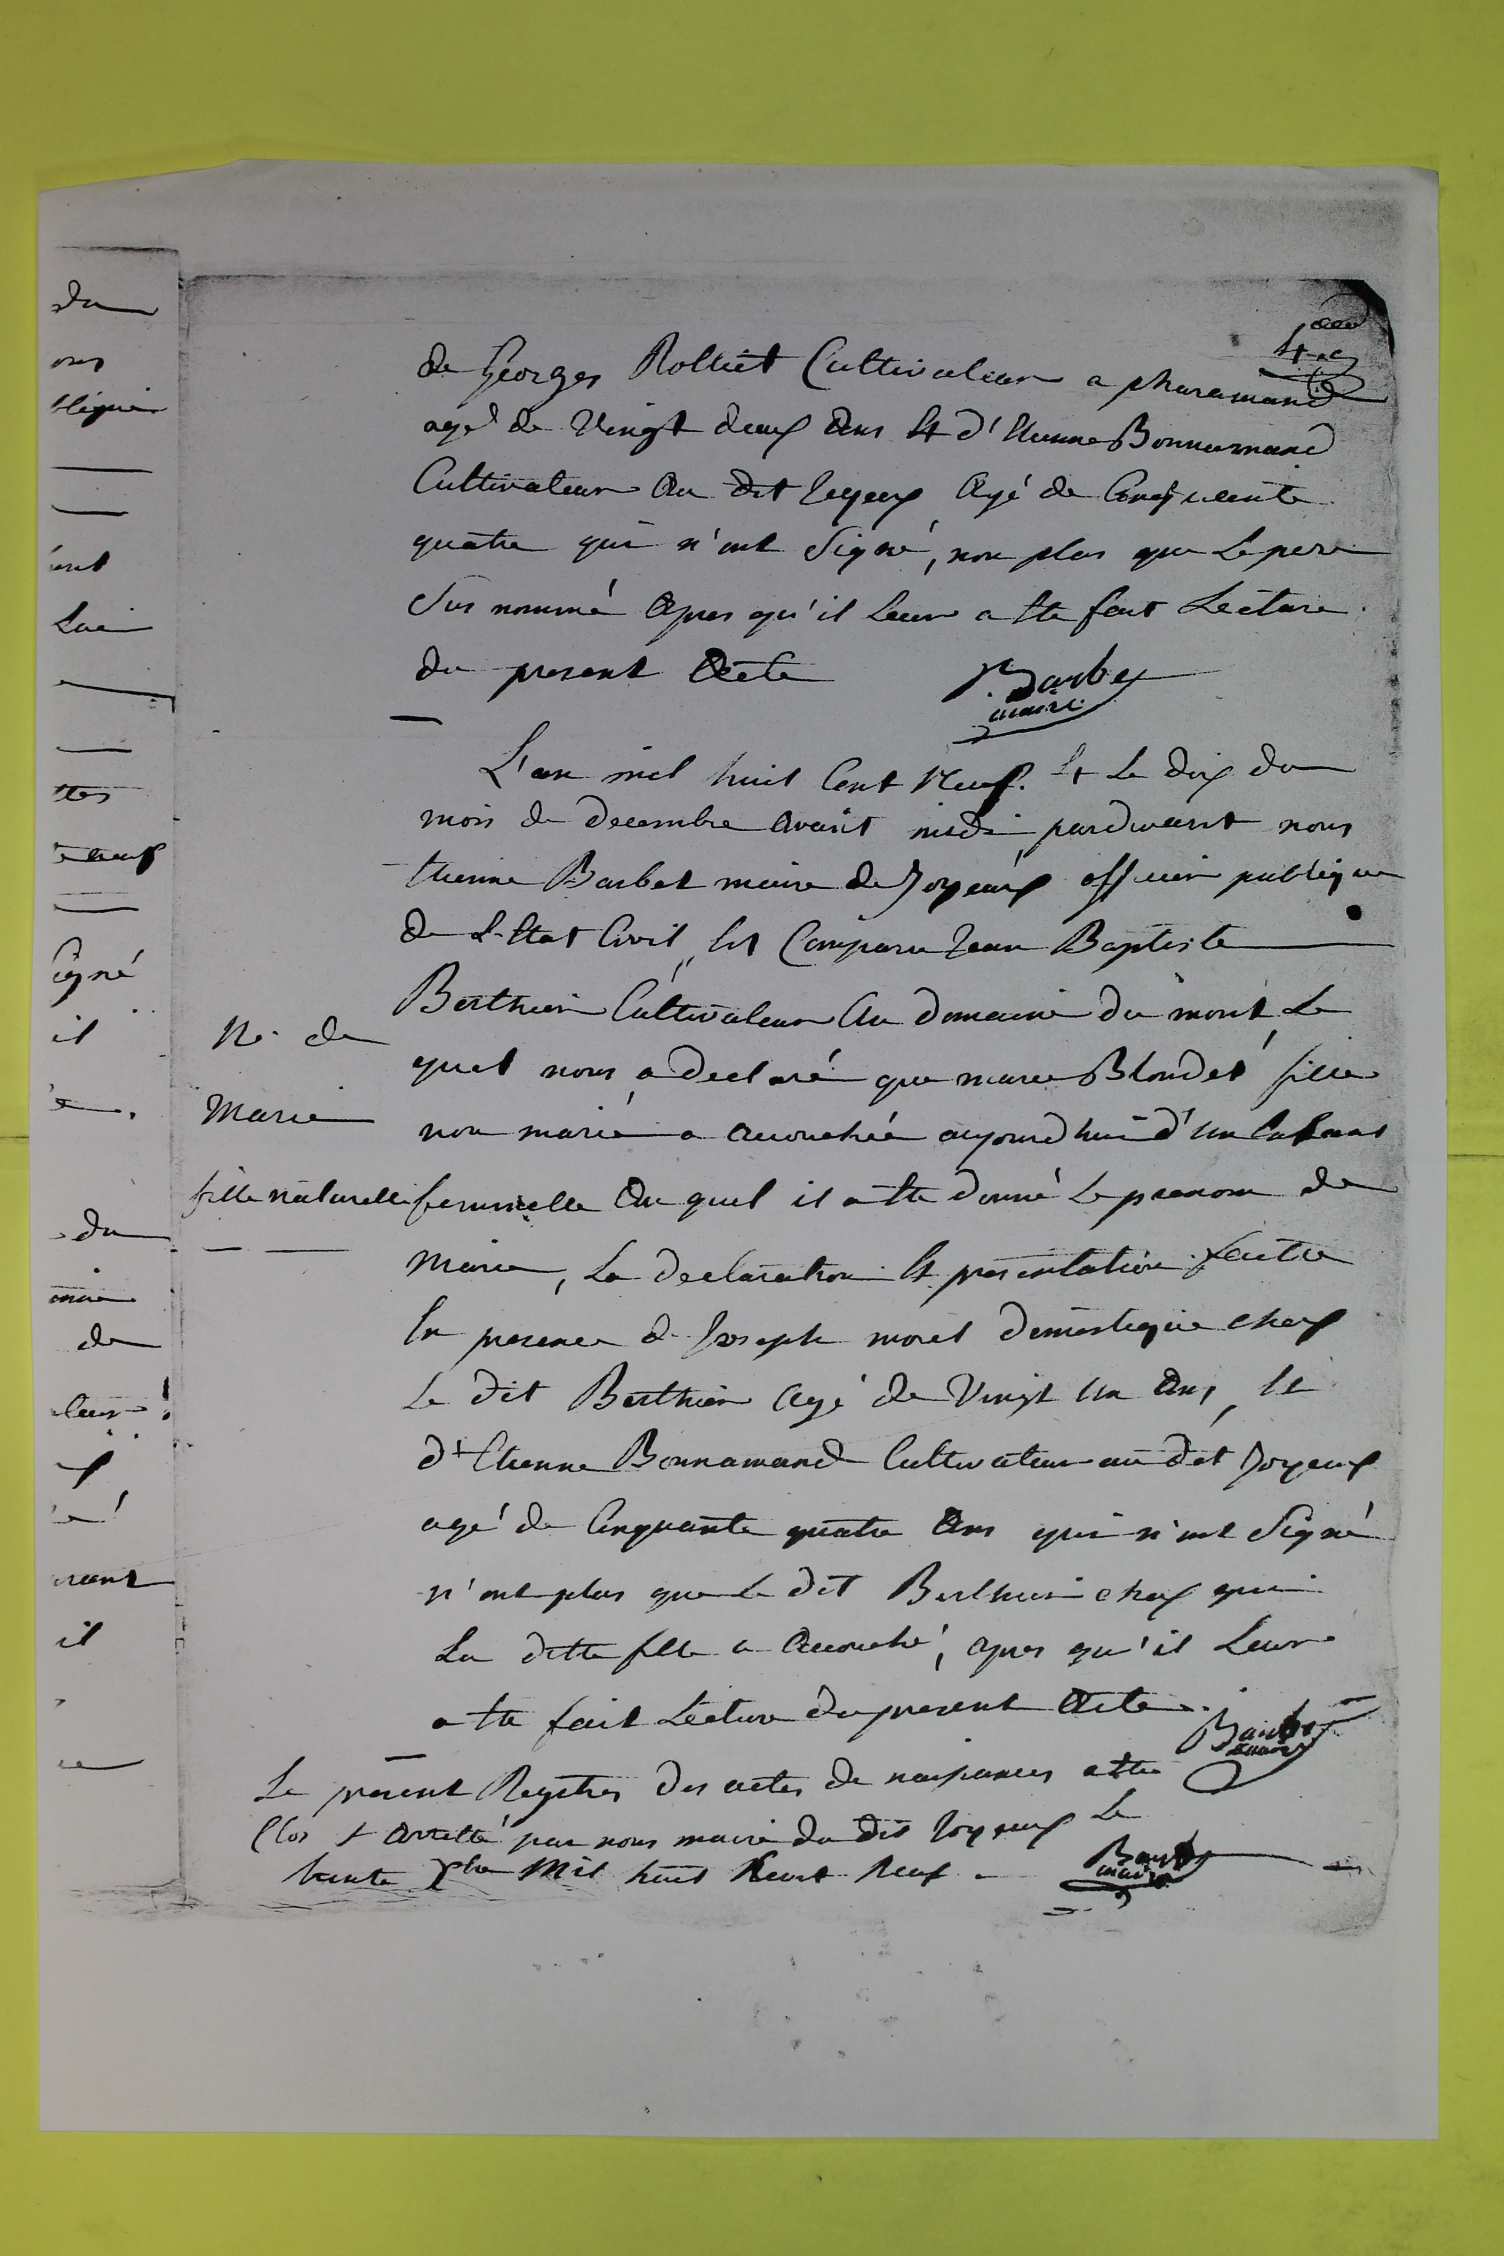 du
ous
bliques
ent
Lui
ttes
neuf
signé
il
du
de
leur
urant
il
de Georges Rolliet Cultivateur a pharamand
agé de Vingt deux Ans Et d'Etienne Bonnamand
Cultivateur Au dit Joyeux Agé de Cinquante
quatre qui n'ont Signé, non plus que Le pere
Sus nommé Apres qu'il Leur a Ete fait Lecture
du present Acte
Barbet
maire
L'an mil huit Cent Neuf. Et Le dix du
mois de decembre Avant midi pardevant nous
Etienne Barbet maire de Joyeux officier publique
de L'Etat Civil, Est Comparu Jean Baptiste
Berthier Cultivateur Au domaine du mont, Le
quel nous a declaré que marie Blondet fille
non marié a accouchée aujourdhui d'un Enfant
femmelle Au quel il a ete donné Le prenom de
Marie, La declaration Et presentation faitte
En presence de Joseph morel domestique chez
Le dit Berthier Agé de Vingt Un Ans, Et
d'Etienne Bonnamand Cultivateur au dit Joyeux
agé de Cinquante quatre Ans qui n'ont Signé
n'ont plus que Le dit Berthier chez qui
La ditte fille a Accouché, apres qu'il Leur
a Ete fait Lecture du present Acte.
Barbet
maire
Ne de
Marie
fille naturelle
Le present Registres des actes de naissances a ete
Clos et Arretté par nous maire du dit Joyeux Le
trente Xbre Mil huit Cent Neuf
Barbet
maire